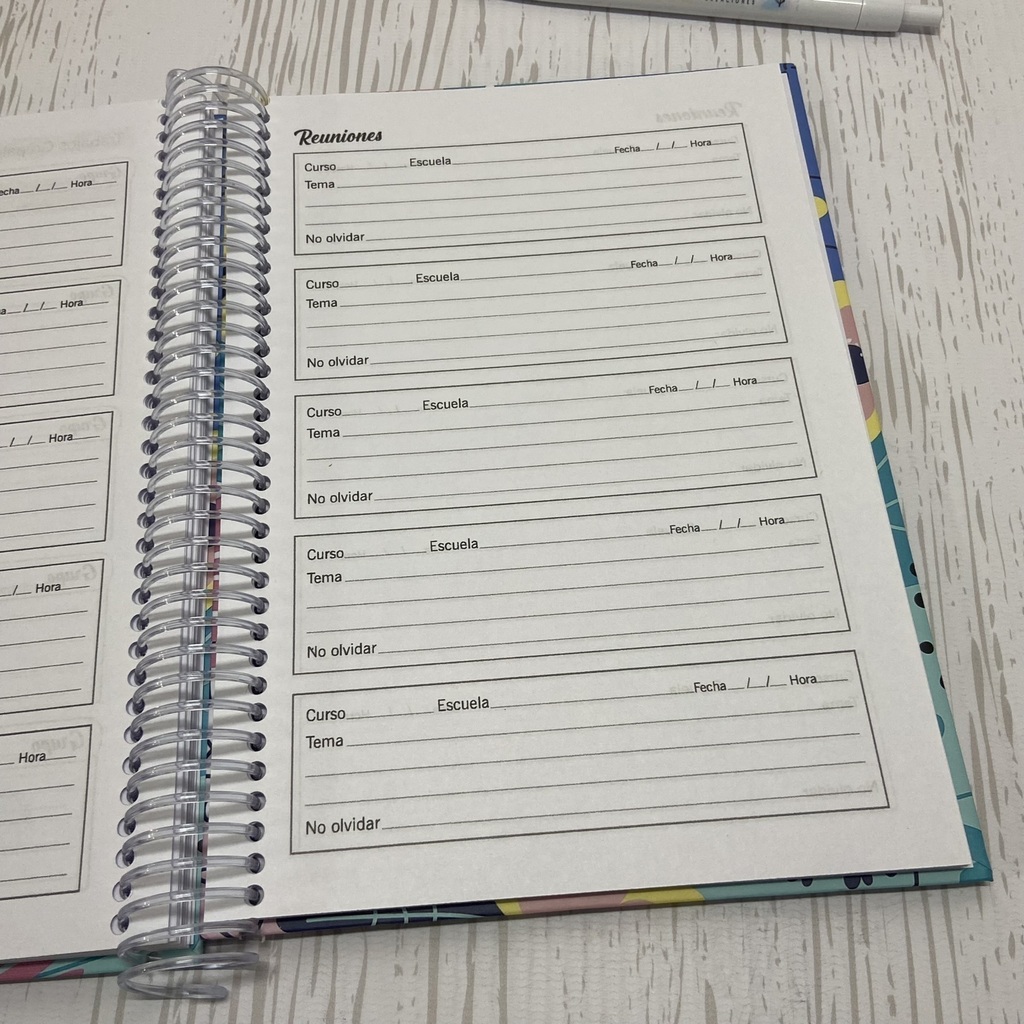 Fecha / / Hora
/ / Hora
/ / Hora
/ Hora
Hora
Reuniones
Curso Escuela Fecha / / Hora
Tema
No olvidar
Curso Escuela Fecha / / Hora
Tema
No olvidar
Curso Escuela Fecha / / Hora
Tema
No olvidar
Curso Escuela Fecha / / Hora
Tema
No olvidar
Curso Escuela Fecha / / Hora
Tema
No olvidar